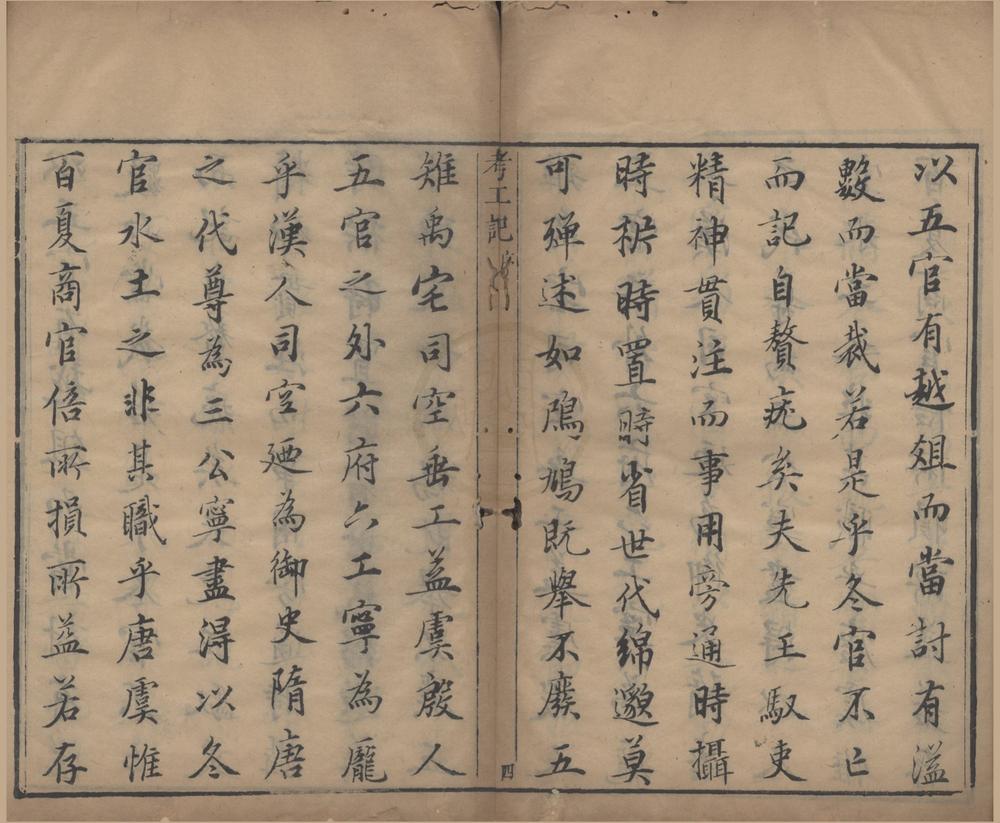 以五官有越俎而當討有溢
數而當裁若是乎冬官不亡
而記自贅疣矣夫先王馭吏
精神貫注而事用旁通時攝
時析時置時省世代綿邈莫
可殫述如鳲鳩既舉不廢五
考工記 序 四
雉禹宅司空垂工益虞殷人
五官之外六府六工寧為龐
乎漢人司空廼為御史隋唐
之代尊為三公寧盡得以冬
官水土之非其職乎唐虞惟
百夏商官倍所損所益若存